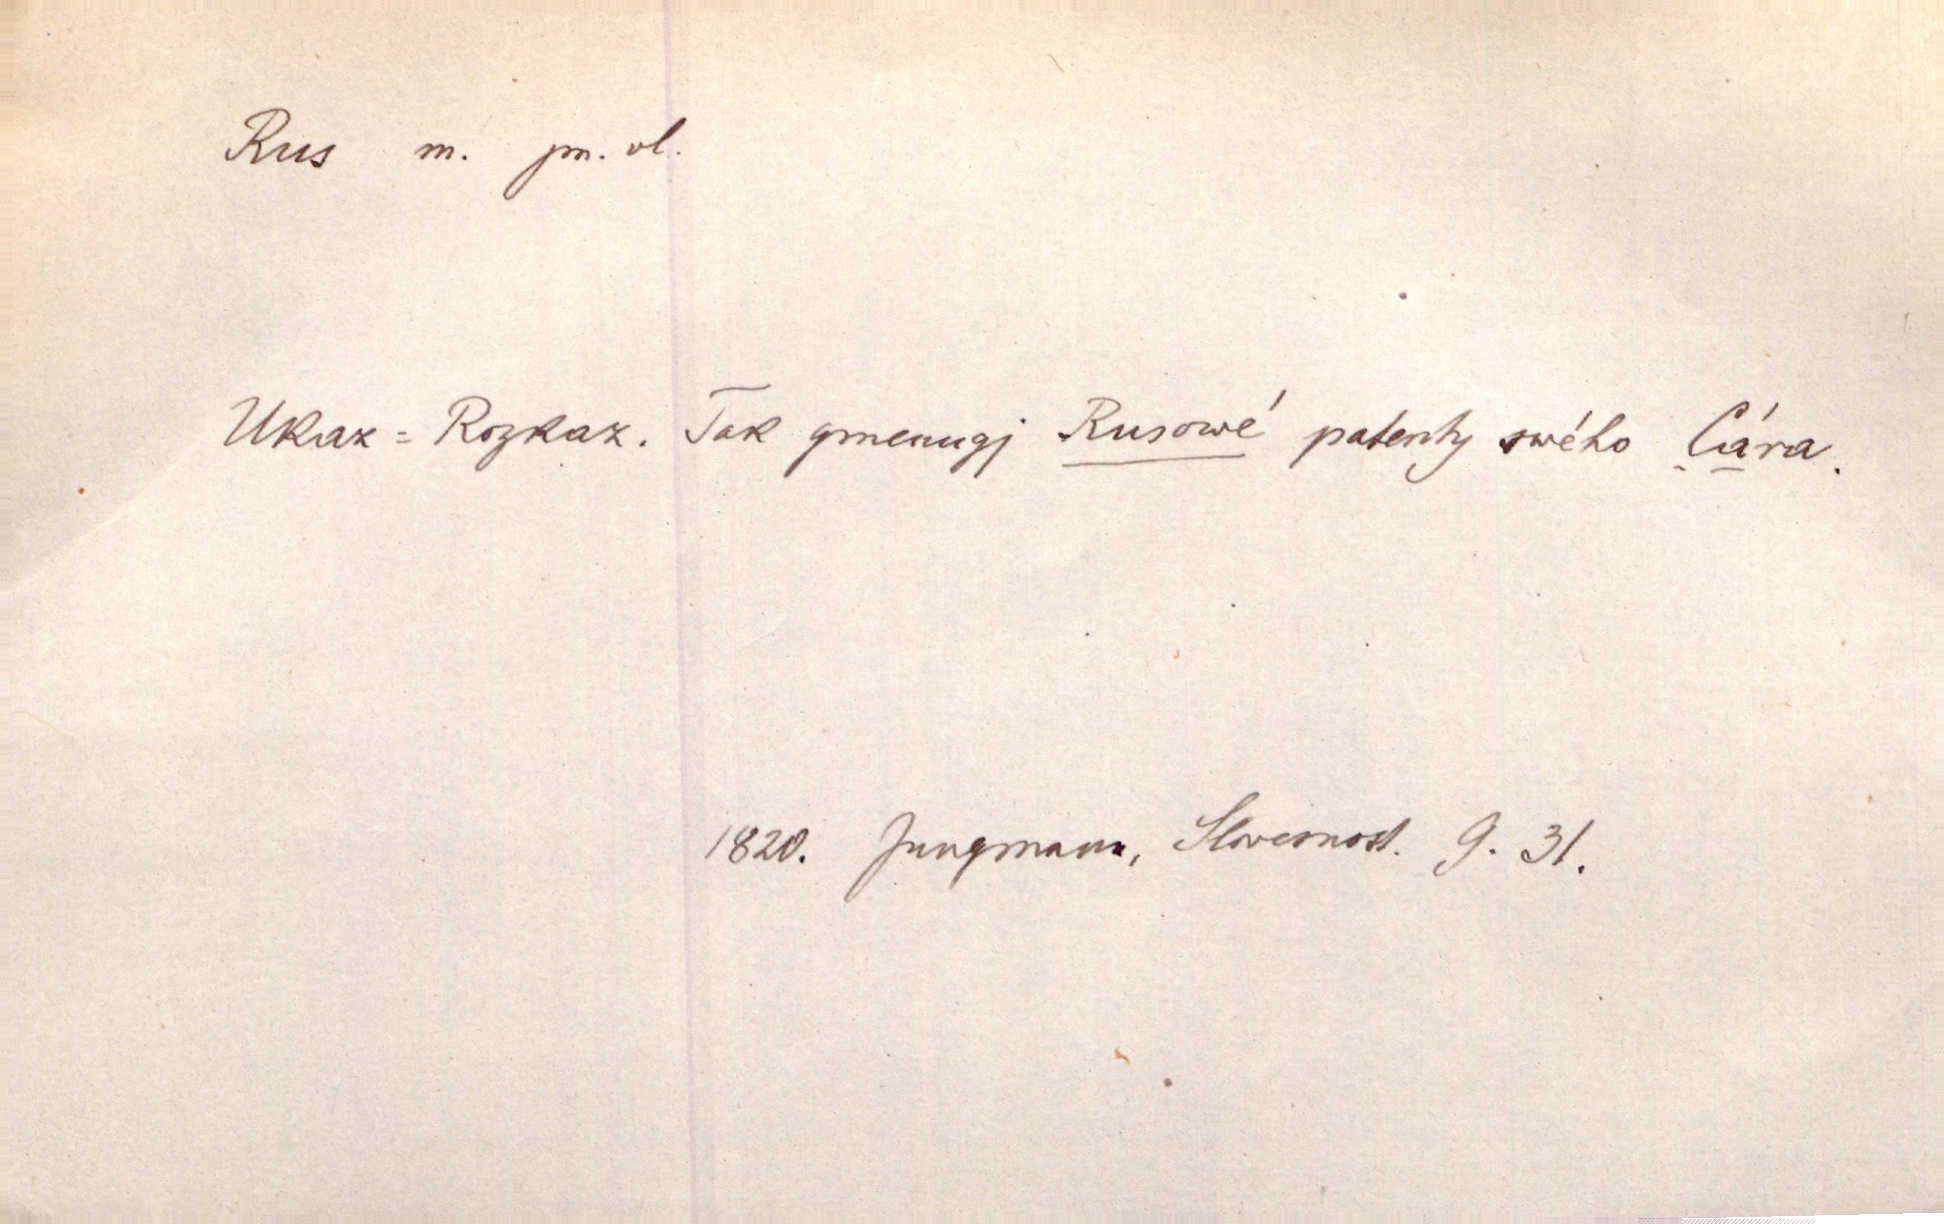 Rus m. jm. vl.
Ukaz = Rozkaz. Tak gmenugj Rusowé patenty swého Cára.
1820. Jungmann, Slovesnost. 9. 31.